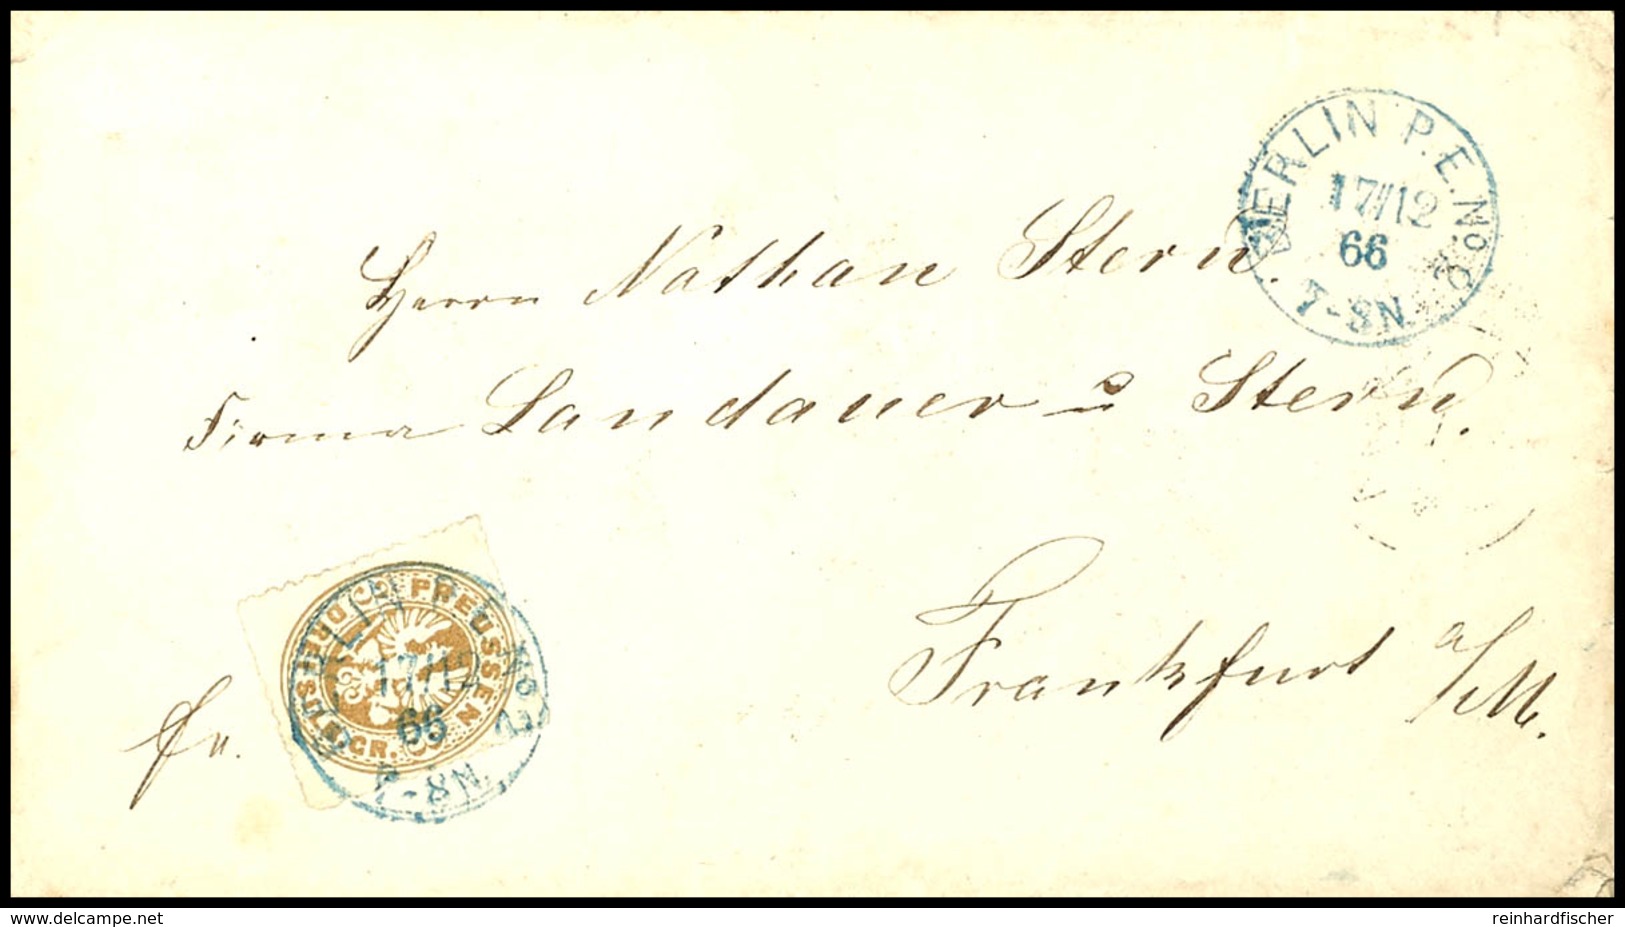 BERLIN P.E. No 2
17/12
66
7-8N
Herrn Nathan Stern.
Firma Landauer u Stern.
Frankfurt a/M.
fr.
PREUSSEN
SILB. GR.
17/12
66
7-8N.
www.delcampe.net
reinhardfischer